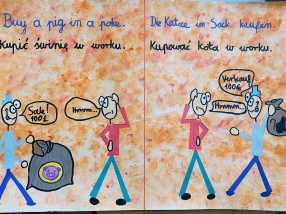 Buy a pig in a poke.
Kupić świnię w worku.
Sale!
100£
Hmmm...
Die Katze im Sack kaufen.
Kupować kota w worku.
Verkauf
100€
Hmmm...